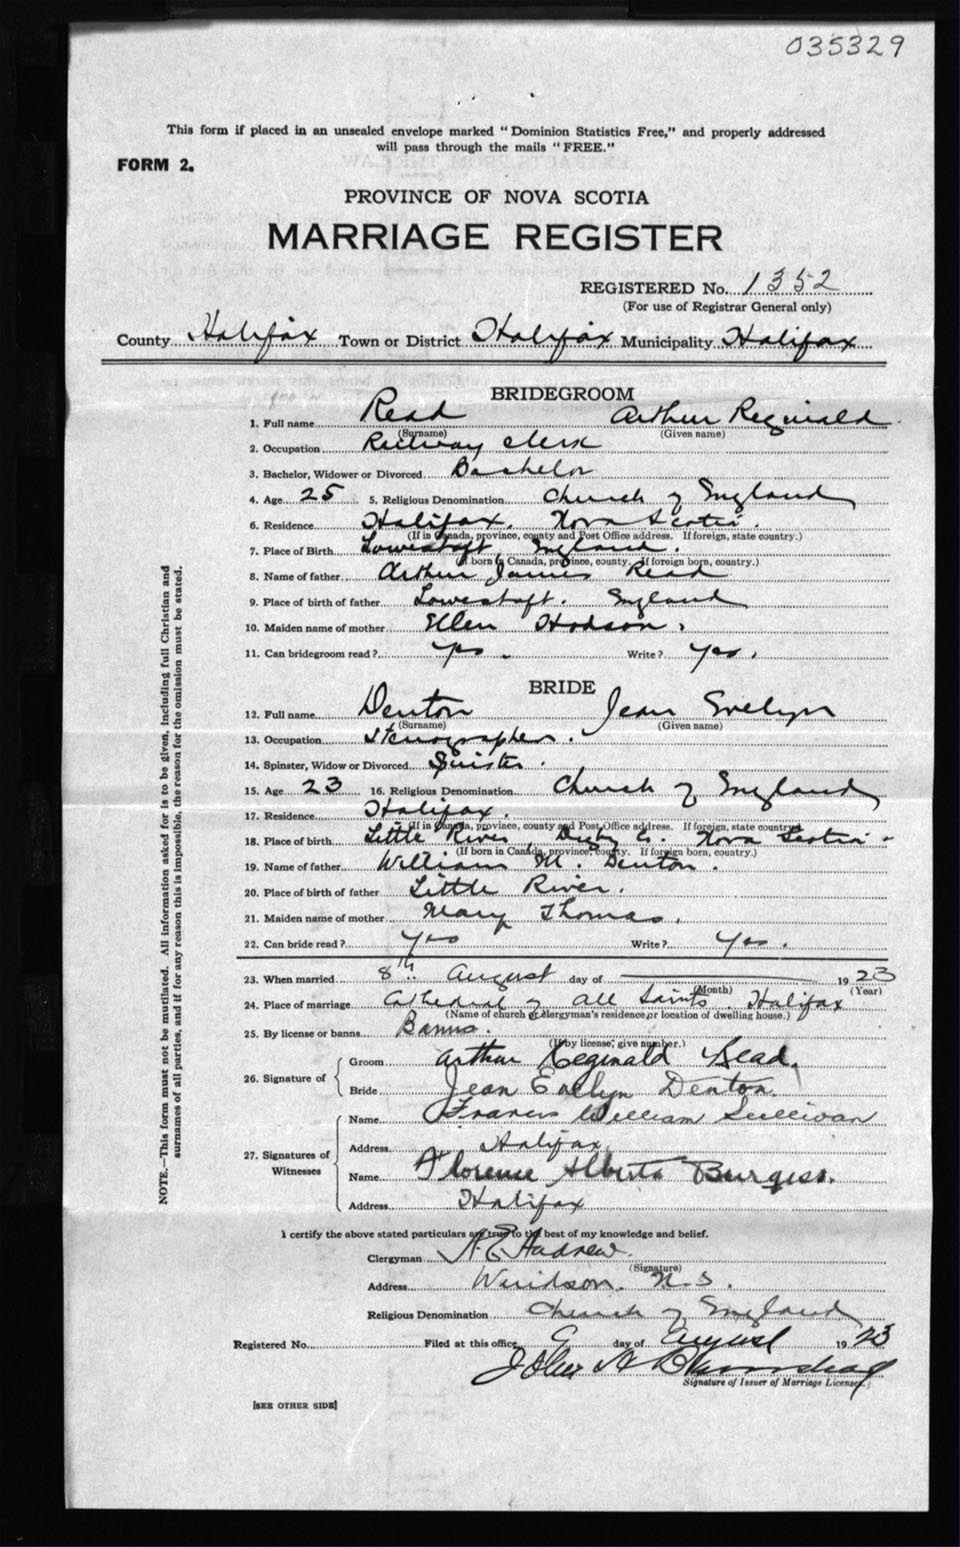 035329
This form if placed in an unsealed envelope marked "Dominion Statistics Free," and properly addressed
will pass through the mails "FREE."
FORM 2.
PROVINCE OF NOVA SCOTIA
MARRIAGE REGISTER
REGISTERED No. 1352
(For use of Registrar General only)
County Halifax Town or District Halifax Municipality Halifax
BRIDEGROOM
1. Full name Read Arthur Reginald
(Surname) (Given name)
2. Occupation Railway clerk
3. Bachelor, Widower or Divorced Bachelor
4. Age 25 5. Religious Denomination Church of England
6. Residence Halifax. Nova Scotia.
(If in Canada, province, county and Post Office address. If foreign, state country.)
7. Place of Birth Lowestoft, England.
(If born in Canada, province, county. If foreign born, country.)
8. Name of father Arthur James Read
9. Place of birth of father Lowestoft. England
10. Maiden name of mother Ellen Hodson.
11. Can bridegroom read? yes. Write? yes.
BRIDE
12. Full name Denton Jean Evelyn
(Surname) (Given name)
13. Occupation Stenographer.
14. Spinster, Widow or Divorced Spinster.
15. Age 23 16. Religious Denomination Church of England
17. Residence Halifax.
(If in Canada, province, county and Post Office address. If foreign, state country.)
18. Place of birth Little River, Digby Co. Nova Scotia.
(If born in Canada, province, county. If foreign born, country.)
19. Name of father William M. Denton.
20. Place of birth of father Little River.
21. Maiden name of mother Mary Thomas.
22. Can bride read? yes Write? yes.
23. When married 8th August day of 1923
(Month) (Year)
24. Place of marriage Cathedral of All Saints. Halifax
(Name of church or clergyman's residence, or location of dwelling house.)
25. By license or banns Banns.
(If by license, give number.)
26. Signature of
Groom Arthur Reginald Read.
Bride Jean Evelyn Denton.
27. Signatures of Witnesses
Name Francis William Sullivan
Address Halifax
Name Florence Alberta Burgess.
Address Halifax
I certify the above stated particulars are true to the best of my knowledge and belief.
Clergyman
(Signature)
Address Windsor. N.S.
Religious Denomination Church of England
Registered No. Filed at this office 9 day of August 1923
John A
Signature of Issuer of Marriage Licenses.
[SEE OTHER SIDE]
NOTE.—This form must not be mutilated. All information asked for is to be given, including full Christian and
surnames of all parties, and if for any reason this is impossible, the reason for the omission must be stated.